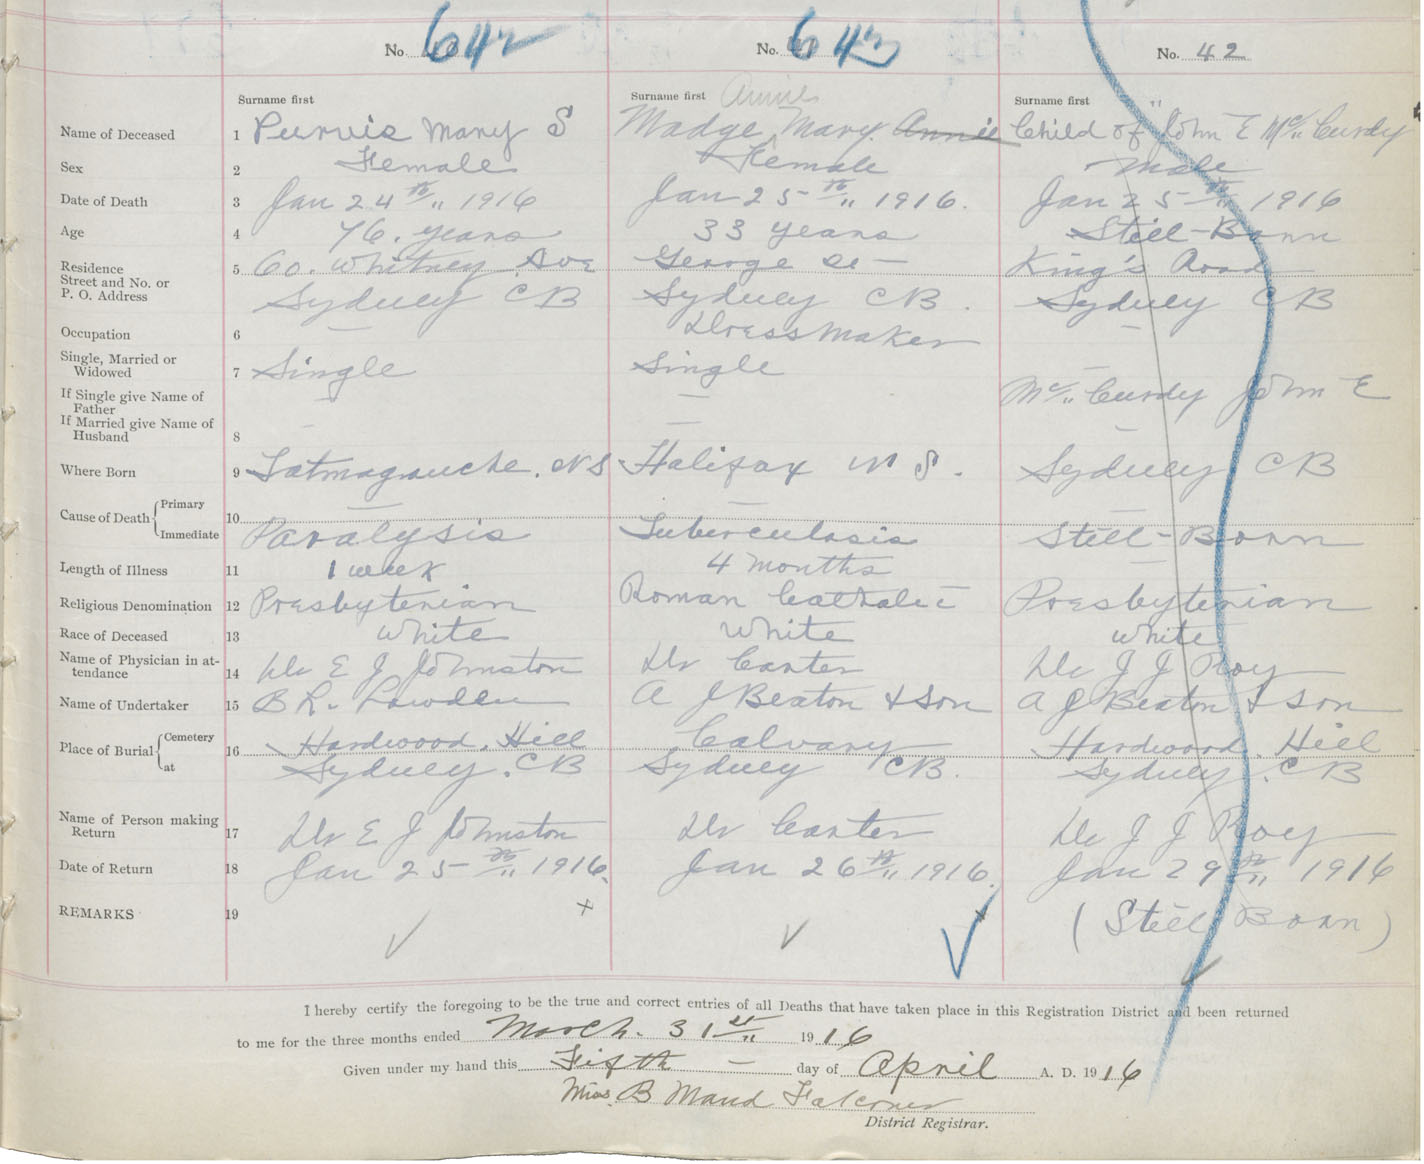 No. 642 No. 643 No. 42
Surname first Surname first Annie Surname first
Name of Deceased 1 Purvis Mary S Madge, Mary. Annie Child of "John E McCurdy
Sex 2 Female Female Male
Date of Death 3 Jan 24th 1916 Jan 25th 1916. Jan 25th 1916
Age 4 76. years 33 years Still-Born
Residence
Street and No. or 5 60. Whitney Ave George St — King's Road
P. O. Address Sydney CB Sydney CB. Sydney CB
Occupation 6 — Dressmaker —
Single, Married or
Widowed 7 Single Single —
If Single give Name of
Father — — McCurdy John E
If Married give Name of
Husband 8 — — —
Where Born 9 Tatmagouche. NS Halifax N S. Sydney CB
Cause of Death Primary 10 — —
Immediate Paralysis Tuberculosis Still-Born
Length of Illness 11 1 week 4 months
Religious Denomination 12 Presbyterian Roman Catholic Presbyterian
Race of Deceased 13 White White White
Name of Physician in at-
tendance 14 Dr E J Johnston Dr Carter Dr J J Roy
Name of Undertaker 15 B L. Lowden A J Beaton & Son A J Beaton & Son
Place of Burial Cemetery 16 Hardwood. Hill Calvary Hardwood. Hill
at Sydney. CB Sydney CB. Sydney. CB
Name of Person making
Return 17 Dr E J Johnston Dr Carter Dr J J Roy
Date of Return 18 Jan 25th 1916. Jan 26th 1916. Jan 29th 1916
REMARKS 19 (Still Born)
I hereby certify the foregoing to be the true and correct entries of all Deaths that have taken place in this Registration District and been returned
to me for the three months ended March. 31st 1916
Given under my hand this Fifth — day of April A. D. 1916
Miss. B Maud Falconer
District Registrar.